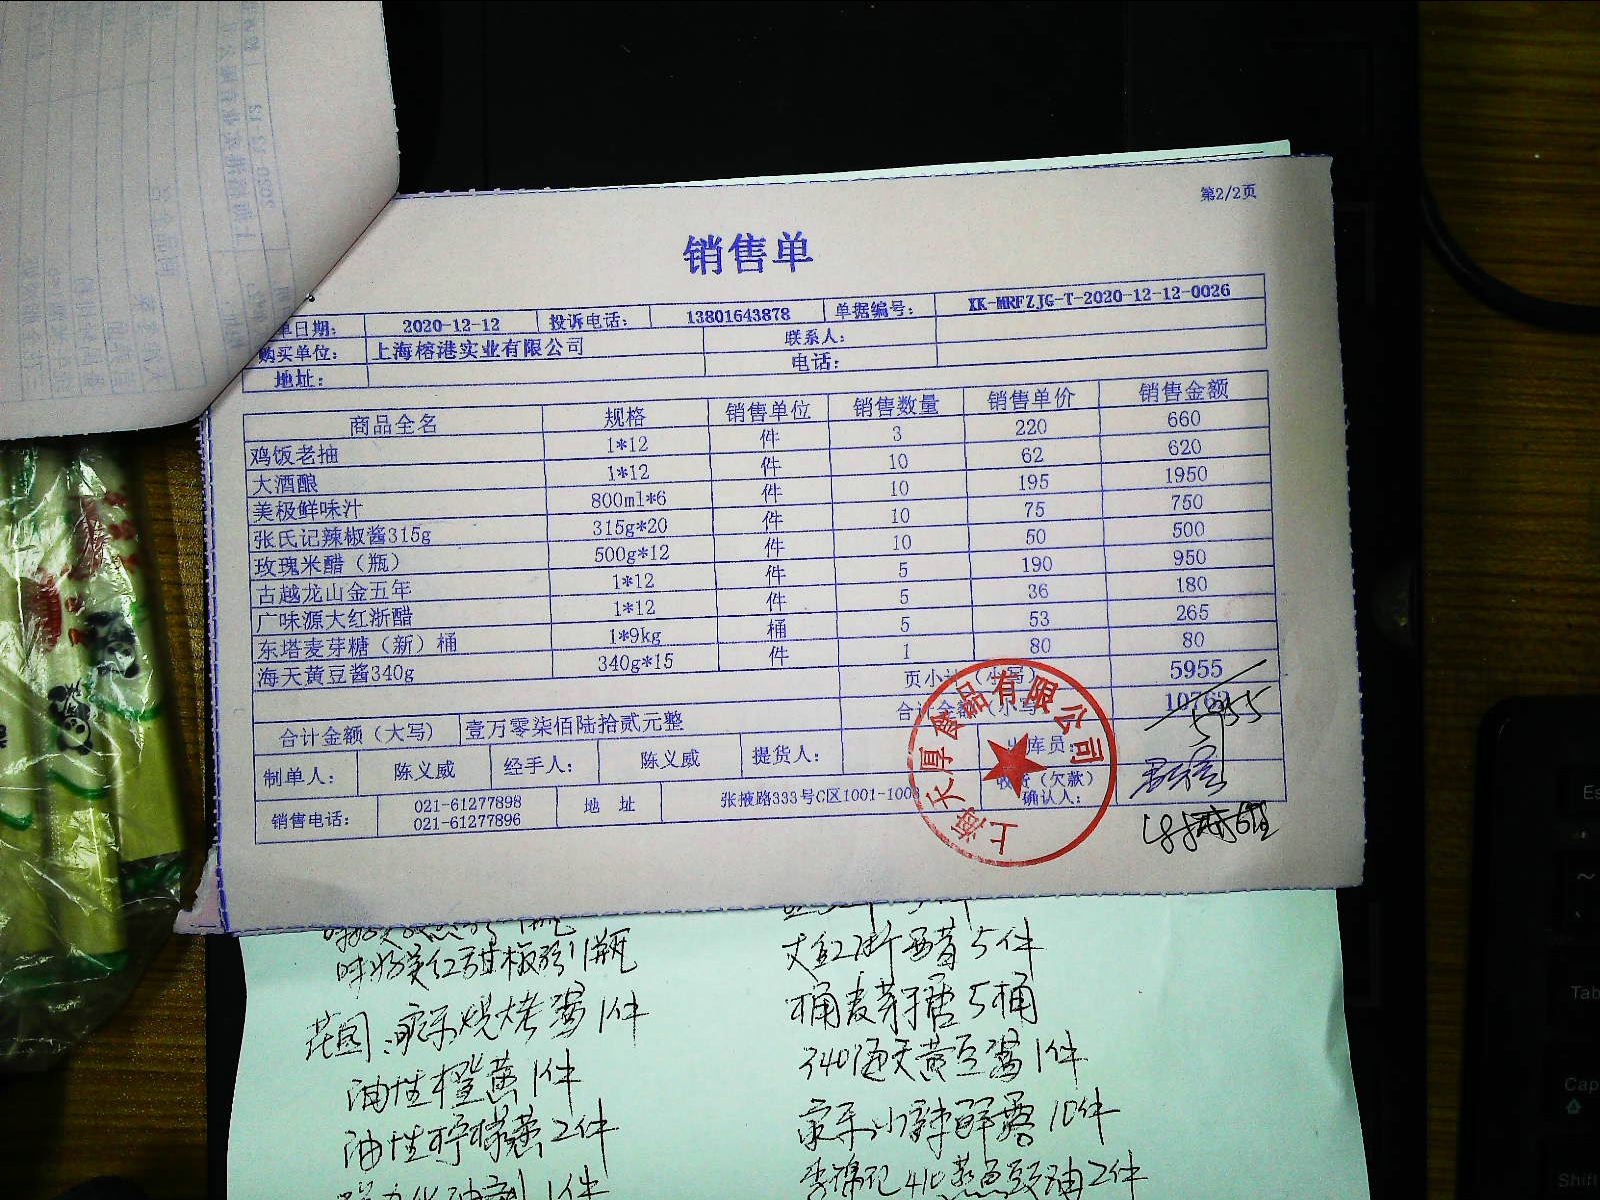 第2/2页
销售单
单日期: 2020-12-12 投诉电话: 13801643878 单据编号: XK-MRFZJG-T-2020-12-12-0026
购买单位: 上海榕港实业有限公司 联系人:
地址: 电话:
商品全名 规格 销售单位 销售数量 销售单价 销售金额
鸡饭老抽 1*12 件 3 220 660
大酒酿 1*12 件 10 62 620
美极鲜味汁 800ml*6 件 10 195 1950
张氏记辣椒酱315g 315g*20 件 10 75 750
玫瑰米醋（瓶） 500g*12 件 10 50 500
古越龙山金五年 1*12 件 5 190 950
广味源大红浙醋 1*12 件 5 36 180
东塔麦芽糖（新）桶 1*9kg 桶 5 53 265
海天黄豆酱340g 340g*15 件 1 80 80
页小计（小写） 5955
合计金额（大写） 壹万零柒佰陆拾贰元整 合计金额（小写 10762
5955
制单人: 陈义威 经手人: 陈义威 提货人: 出库员:
销售电话: 021-61277898 021-61277896 地 址 张掖路333号C区1001-1003 收货（欠款）确认人:
上海天厚食品有限公司
味好美红甜椒粉1瓶
大红浙醋5件
桶麦芽糖5桶
烧烤酱1件
340海天黄豆酱1件
油性橙黄1件
家乐小辣鲜露10件
油性柠檬黄2件
李锦记410蒸鱼豉油2件
1件